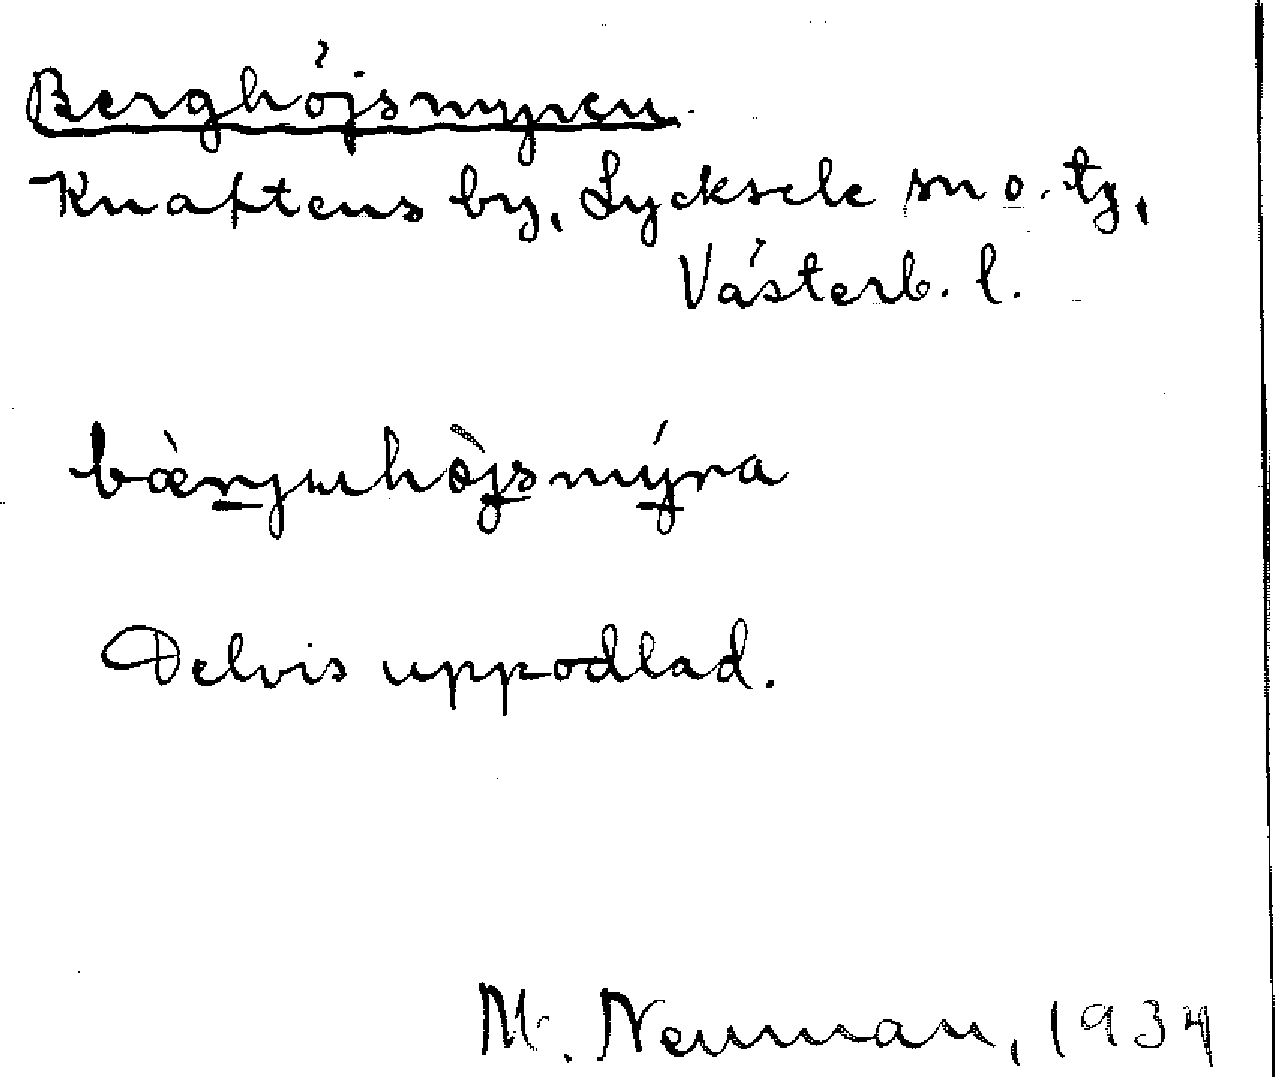 Berghöjsmyren
Knaftens by, Lycksele sn o. tg,
Västerb. l.
bærjuhöjsmýra
Delvis uppodlad.
M. Neuman, 1934